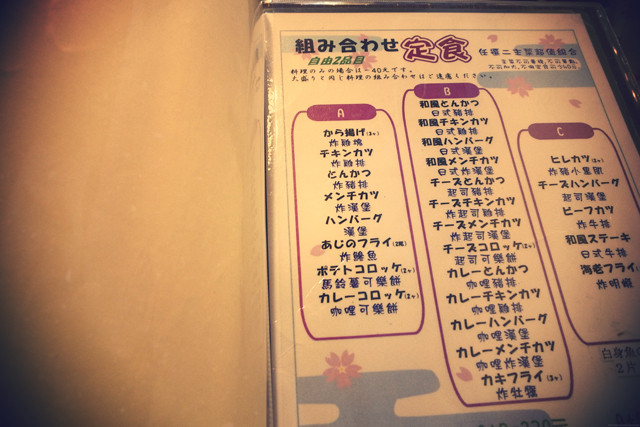 組み合わせ定食 任選二主菜超值組合
自由2品目
料理のみの場合は−40元です。
大盛りと同じ料理の組み合わせはご遠慮ください。
A
から揚げ(3ヶ)
炸雞塊
チキンカツ
炸雞排
とんかつ
炸豬排
メンチカツ
炸漢堡
ハンバーグ
漢堡
あじのフライ(2尾)
炸鯵魚
ポテトコロッケ(2ヶ)
馬鈴薯可樂餅
カレーコロッケ(2ヶ)
咖哩可樂餅
B
和風とんかつ
日式豬排
和風チキンカツ
日式雞排
和風ハンバーグ
日式漢堡
和風メンチカツ
日式炸漢堡
チーズとんかつ
起司豬排
チーズチキンカツ
炸起司雞排
チーズメンチカツ
炸起司漢堡
チーズコロッケ(2ヶ)
起司可樂餅
カレーとんかつ
咖哩豬排
カレーチキンカツ
咖哩雞排
カレーハンバーグ
咖哩漢堡
カレーメンチカツ
咖哩炸漢堡
カキフライ(3ヶ)
炸牡蠣
C
ヒレカツ(2ヶ)
炸豬小里肌
チーズハンバーグ
起司漢堡
ビーフカツ
炸牛排
和風ステーキ
日式牛排
海老フライ
炸明蝦
白身魚
2片